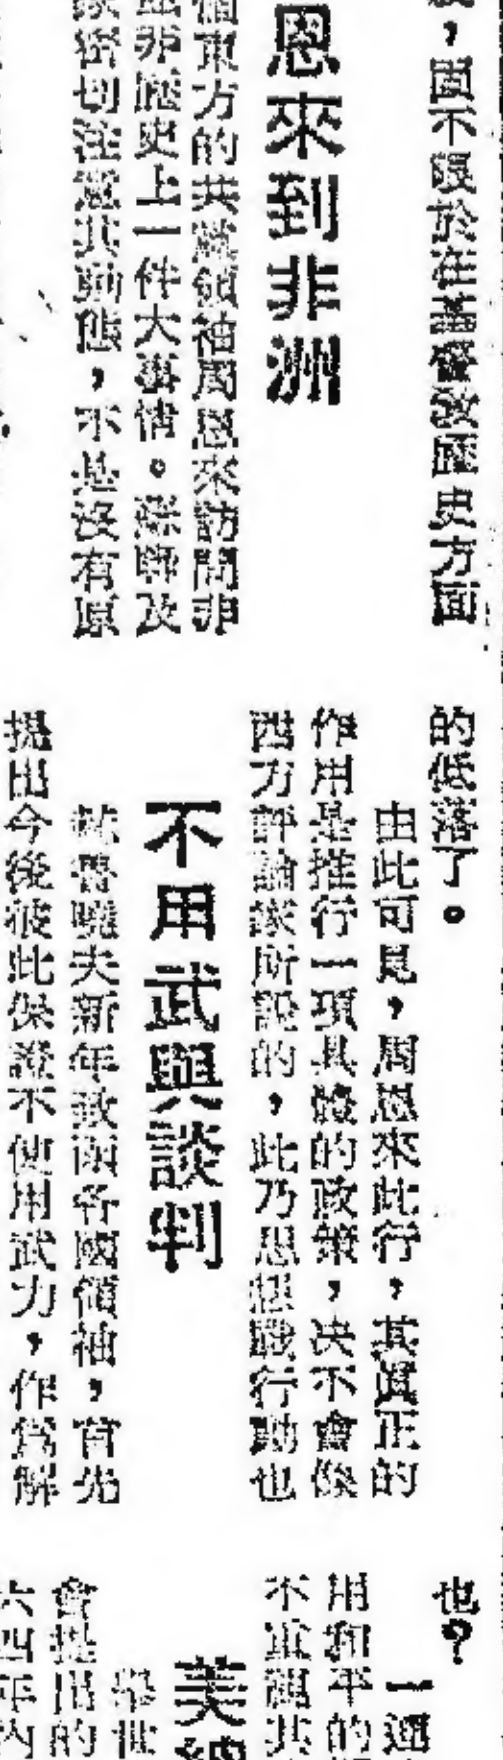 固不限於在
史方面
恩來到非洲
東方的共黨領袖周恩來訪問非
非歷史上一件大事情。蘇聯及
密切注意其動態,不是沒有原
的低落了。
由此可見,周恩來此行,其眞正的
作用是推行一項具體的政策,决不會像
西方評論家所說的,此乃思想戰行動也
不用武與談判
赫魯曉夫新年致函各國領袖,首先
提出今後彼此保證不使用武力,作爲解
也?
一
用和平的
不重視共
美總
舉世
會提出的
六四年內